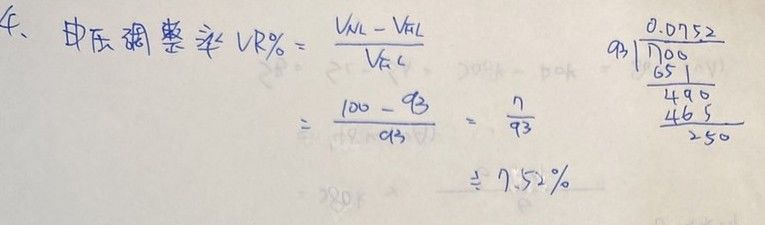 4. 電压調整率 VR% = (VNL - VFL) / VFL
= (100 - 93) / 93 = 7 / 93
≒ 7.52%
0.0752
93 ) 700
651
490
465
250